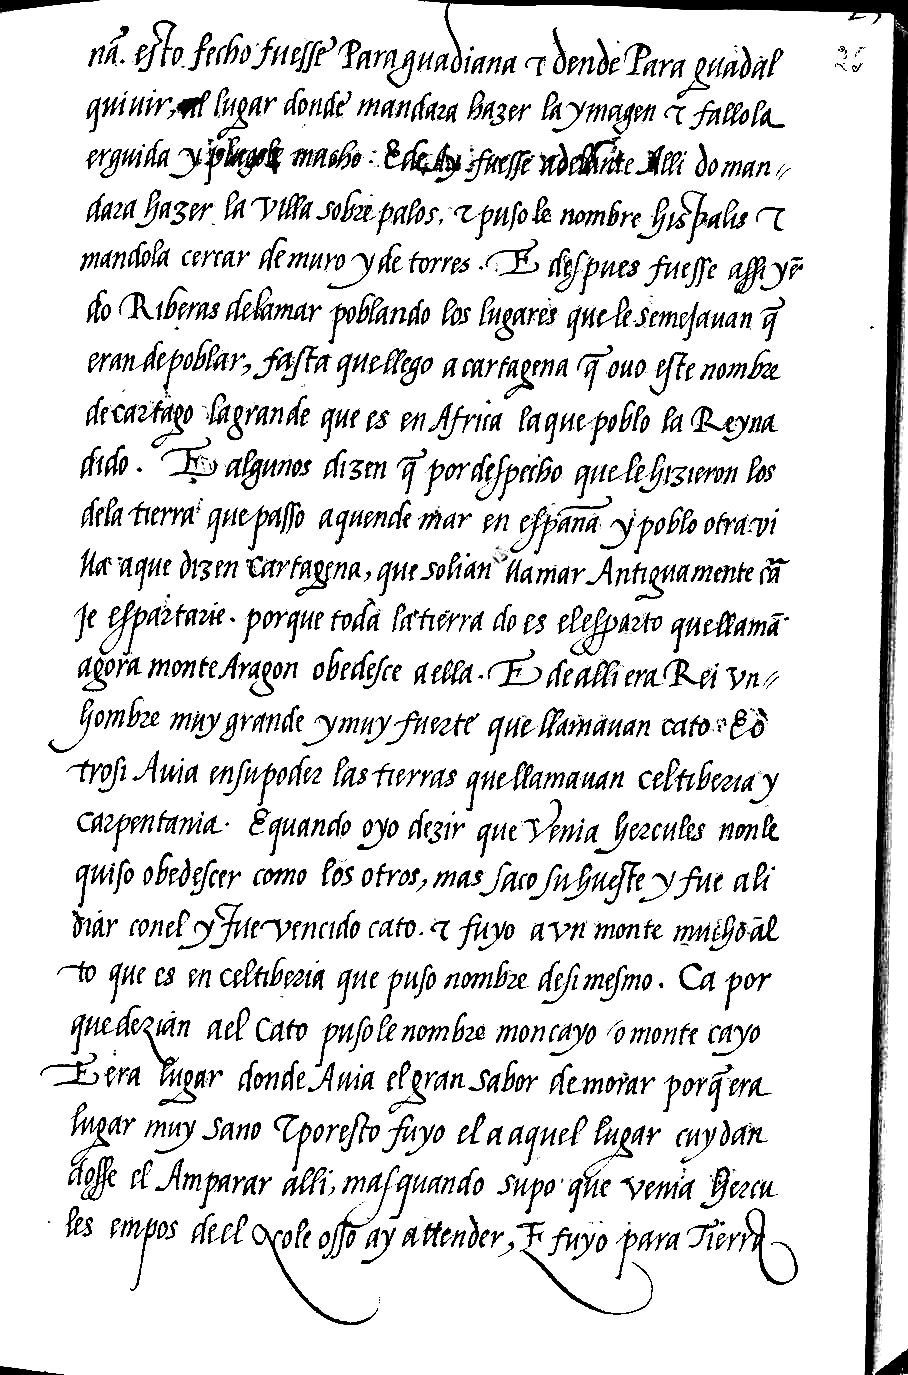 25
nā. esto fecho fuesse Para guadiana ꞇ dende Para guadal
quiuir, al lugar donde mandara hazer la ymagen ꞇ fallola
erguida y plugole mucho. E de Ay fuesse adelante Alli do man-
dara hazer la Villa sobre palos. ꞇ puso le nombre hispalis ꞇ
mandola cercar de muro y de torres. E despues fuesse assi yē
do Riberas dela mar poblando los lugares que le semejauan q̄
eran de poblar, fasta que llego a cartagena q̄ ouo este nombre
de cartago la grande que es en Africa la que poblo la Reyna
dido. E algunos dizen q̄ por despecho que le hizieron los
dela tierra que passo aquende mar en espāna y poblo otra vi
lla aque dizen Cartagena, que solian llamar Antiguamente cā
je espartarie. porque toda la tierra do es el esparto que llamā
agora monte Aragon obedesce a ella. E de alli era Rei vn-
hombre muy grande y muy fuerte que llamauan cato. E o
trosi Auia en su poder las tierras que llamauan celtiberia y
carpentania. E quando oyo dezir que Venia hercules non le
quiso obedescer como los otros, mas saco su hueste y fue a li
diar conel y fue vencido cato. ꞇ fuyo a vn monte mucho āl
to que es en celtiberia que puso nombre desi mesmo. Ca por
que dezian a el Cato puso le nombre moncayo o monte cayo
E era lugar donde Auia el gran sabor de morar porq̄ era
lugar muy sano ꞇ por esto fuyo el a aquel lugar cuydan
dosse el Amparar alli, mas quando supo que venia hercu
les empos de el no le osso ay attender, E fuyo para Tierra